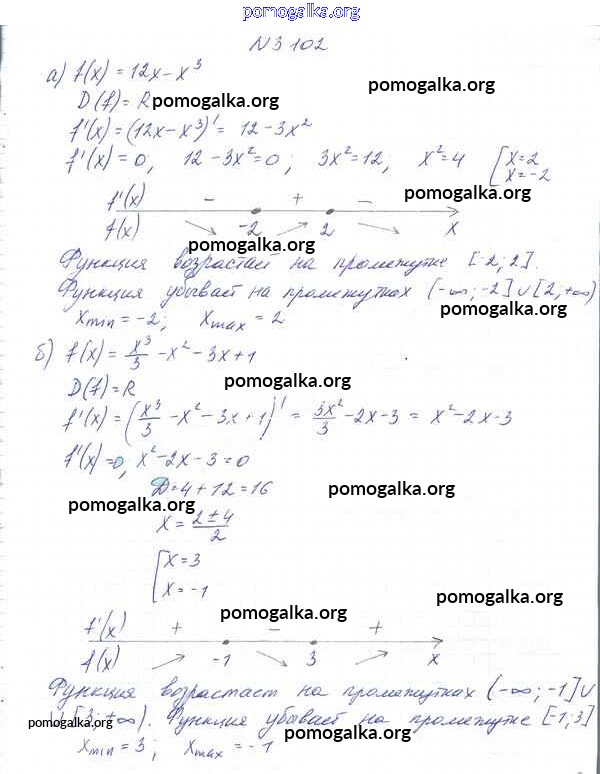 pomogalka.org
N3 102
а) f(x) = 12x - x³
pomogalka.org
D(f) = R
pomogalka.org
f'(x) = (12x - x³)' = 12 - 3x²
f'(x) = 0; 12 - 3x² = 0; 3x² = 12, x² = 4 [x = 2
x = -2
pomogalka.org
f'(x) - + -
f(x) -2 2 x
pomogalka.org
Функция возрастает на промежутке [-2; 2].
Функция убывает на промежутках (-∞; -2] ∪ [2; +∞)
pomogalka.org
xmin = -2; xmax = 2
б) f(x) = x³/3 - x² - 3x + 1
pomogalka.org
D(f) = R
f'(x) = (x³/3 - x² - 3x + 1)' = 3x²/3 - 2x - 3 = x² - 2x - 3
f'(x) = 0, x² - 2x - 3 = 0
D = 4 + 12 = 16
pomogalka.org
pomogalka.org
x = 2 ± 4/2
[x = 3
x = -1
pomogalka.org
pomogalka.org
f'(x) + - +
f(x) -1 3 x
Функция возрастает на промежутках (-∞; -1] ∪
∪ [3; +∞). Функция убывает на промежутке [-1; 3]
pomogalka.org
pomogalka.org
xmin = 3; xmax = -1